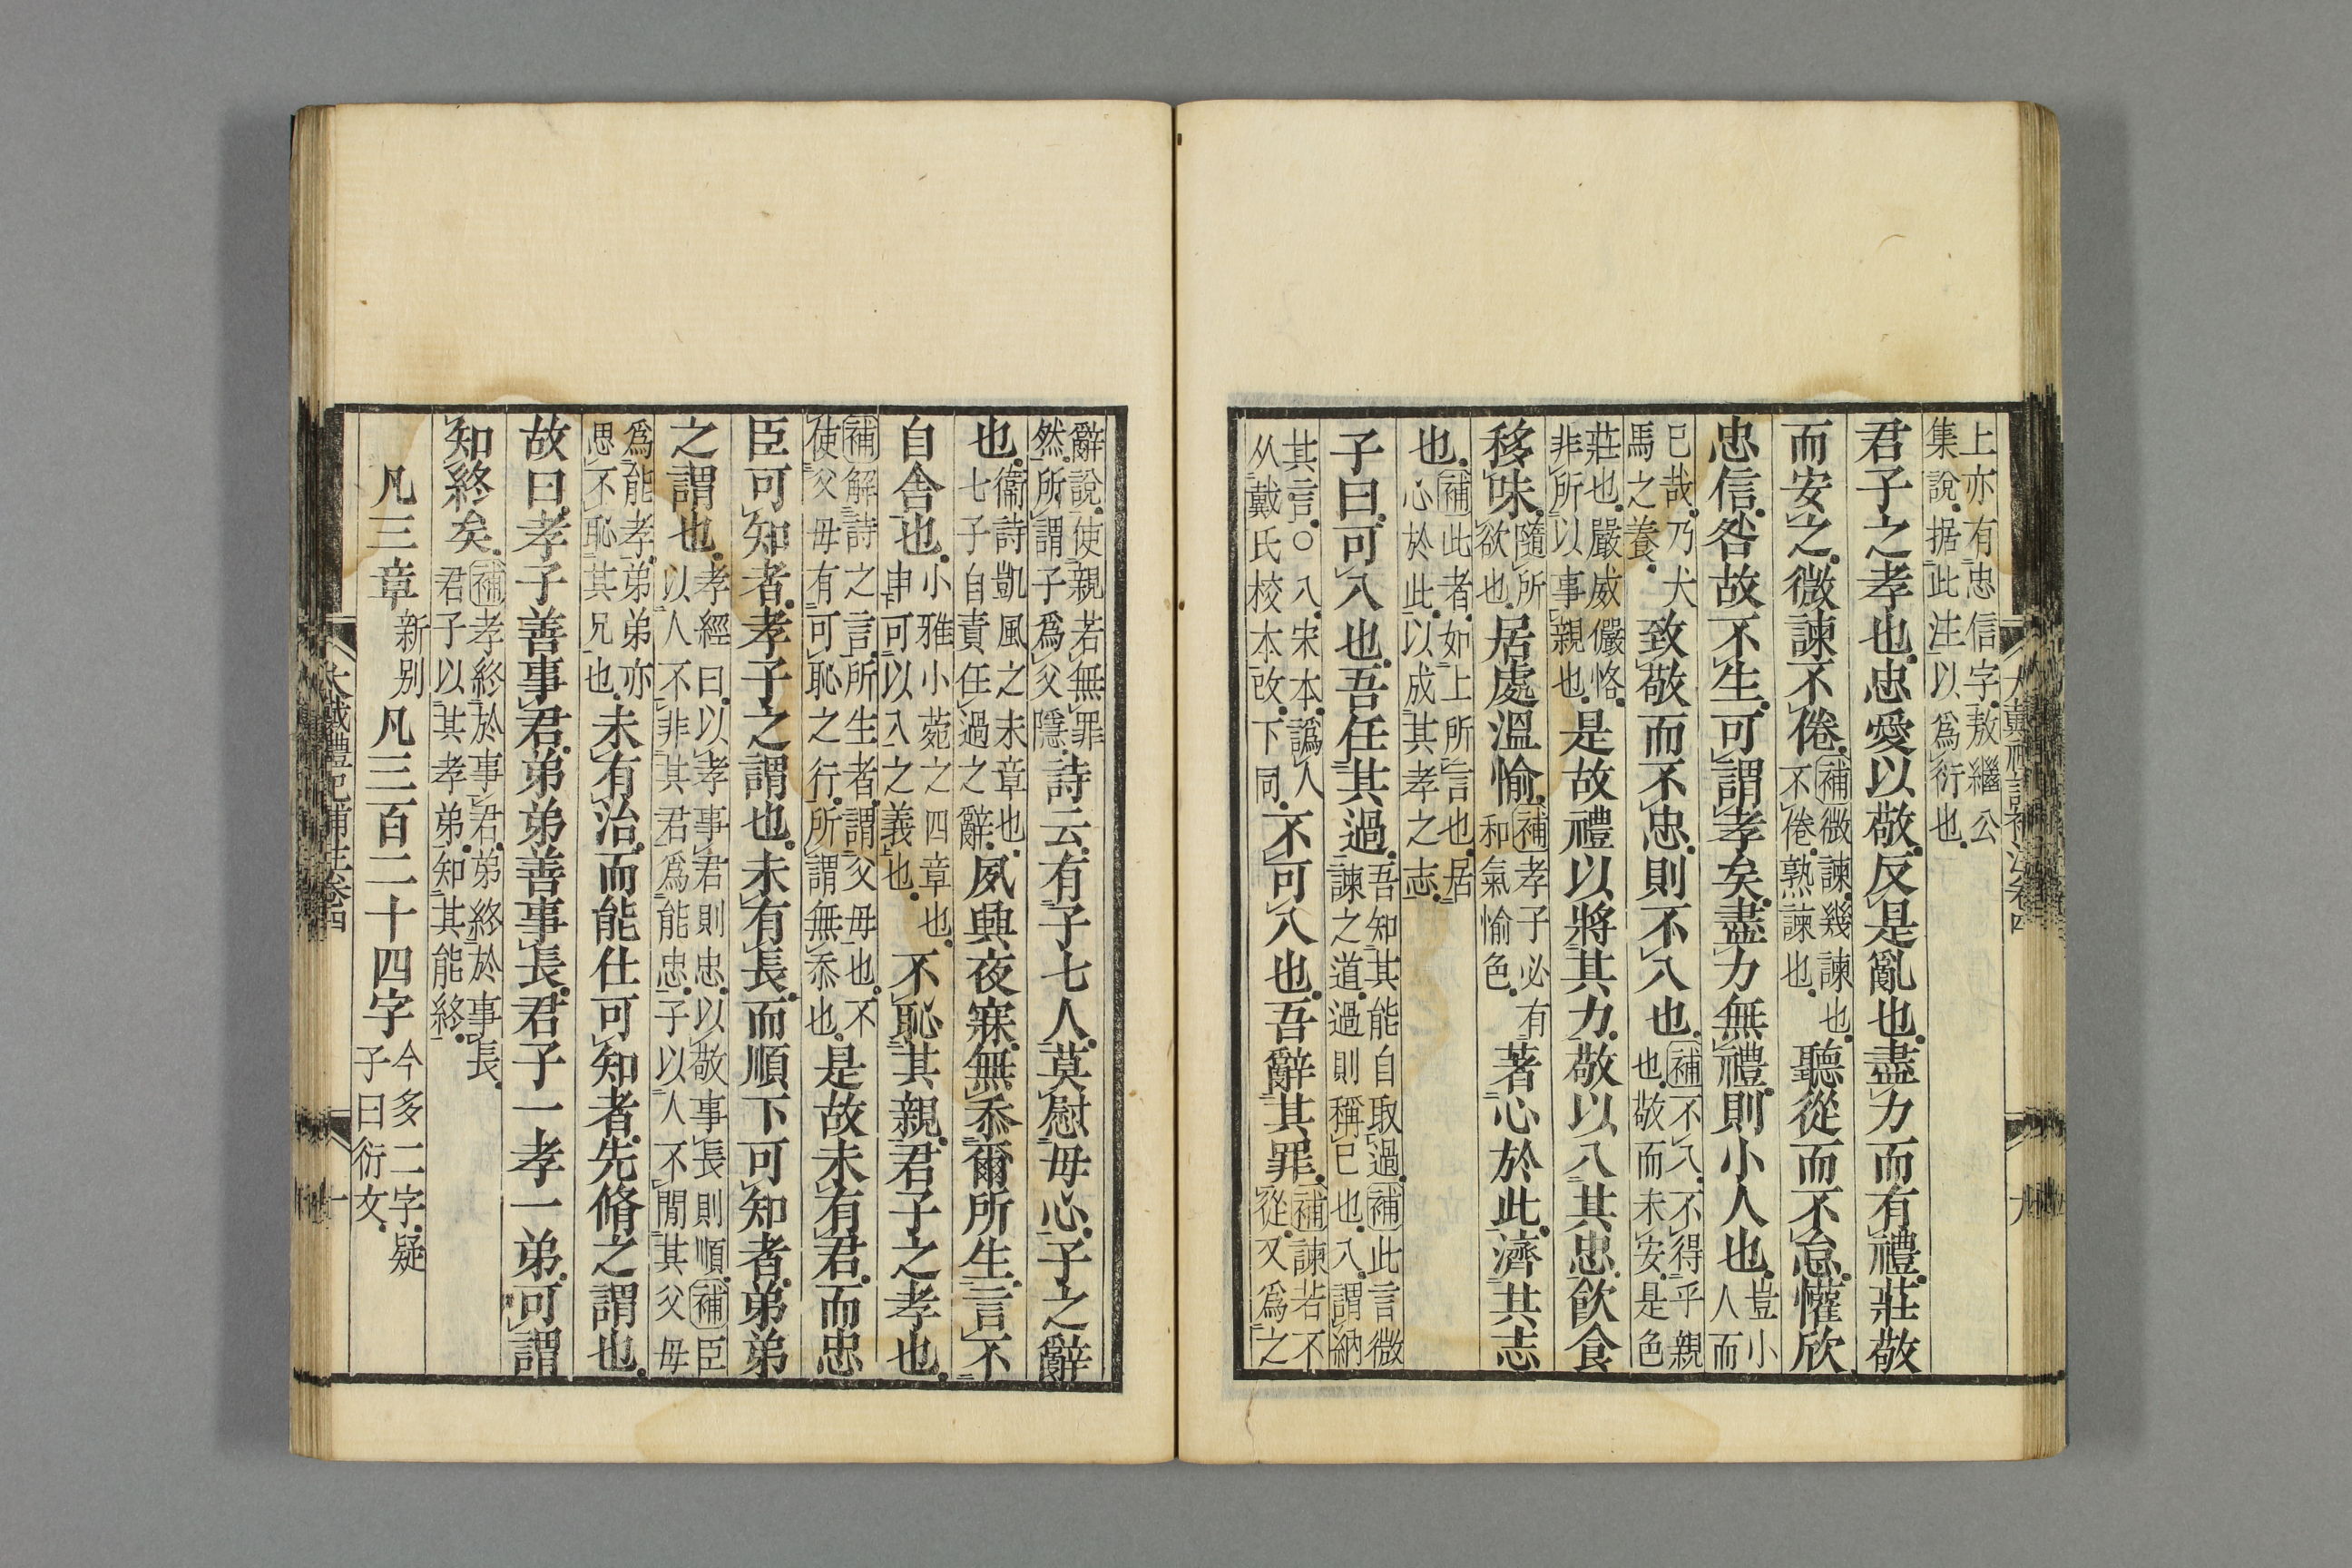 上亦有忠信字敖繼公
集說据此注以爲衍也
君子之孝也忠愛以敬反是亂也盡力而有禮莊敬
而安之微諫不倦補微諫幾諫也不倦熟諫也聽從而不怠懽欣
忠信咎故不生可謂孝矣盡力無禮則小人也豈小人而
已哉乃犬馬之養致敬而不忠則不入也補不入不得乎親也敬而未安是色
莊也嚴威儼恪非所以事親也是故禮以將其力敬以入其忠飲食
移味隨所欲也居處溫愉補孝子必有和氣愉色著心於此濟其志
也補此者如上所言也居心於此以成其孝之志
子曰可入也吾任其過吾知其能自取過補此言微諫之道過則稱已也入謂納
其言○入宋本譌人从戴氏校本改下同不可入也吾辭其罪補諫若不從又爲之
大戴禮記補注卷四
九
辭說使親若無罪然所謂子爲父隱詩云有子七人莫慰母心子之辭
也衞詩凱風之末章也七子自責任過之辭夙興夜寐無忝爾所生言不
自舍也小雅小菀之四章也申可以入之義也不恥其親君子之孝也
補解詩之言所生者謂父母也不使父母有可恥之行所謂無忝也是故未有君而忠
臣可知者孝子之謂也未有長而順下可知者弟弟
之謂也孝經曰以孝事君則忠以敬事長則順補臣以人不非其君爲能忠子以人不閒其父母
爲能孝弟弟亦思不恥其兄也未有治而能仕可知者先脩之謂也
故曰孝子善事君弟弟善事長君子一孝一弟可謂
知終矣補孝終於事君弟終於事長君子以其孝弟知其能終
凡三章新別凡三百二十四字今多二字疑子曰衍文
大戴禮記補注卷四
十